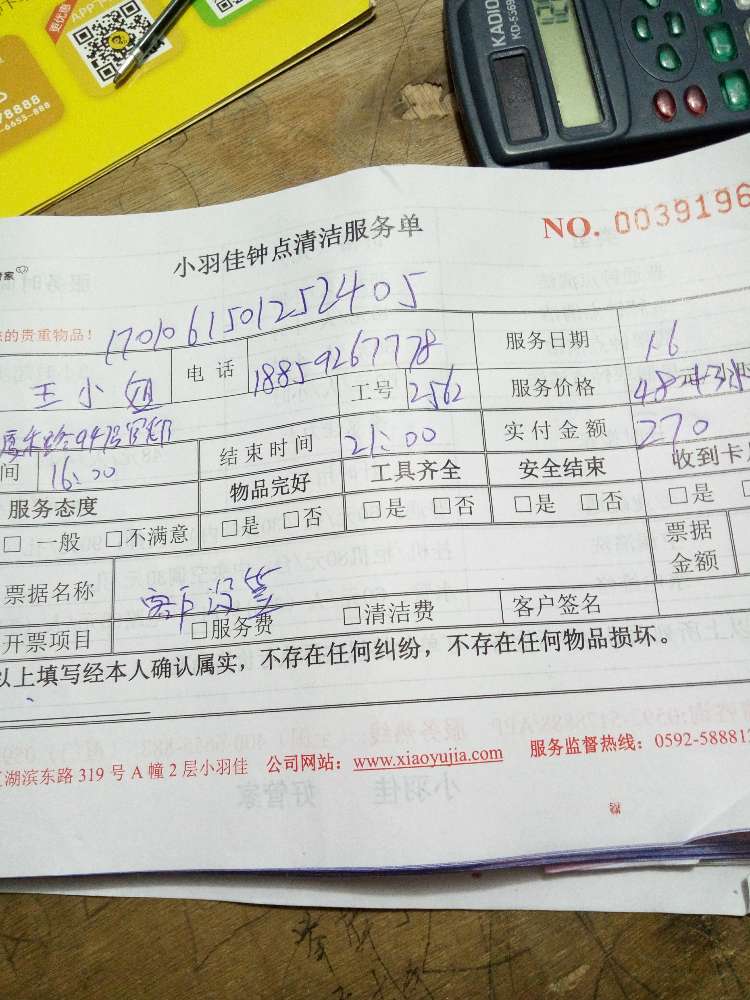 更优惠
APP下
KADIO
KD-5369
78888
-6655-888
小羽佳钟点清洁服务单
NO. 0039196
管家
的贵重物品!
1701061501252405
王小姐
电话
18859267778
服务日期
1.6
工号
2562
服务价格
48元
间
16:00
结束时间
21:00
实付金额
270
服务态度
物品完好
工具齐全
安全结束
收到卡
□一般 □不满意
□是 □否
□是 □否
□是 □否
□是
票据名称
客户没笔
票据金额
开票项目
□服务费 □清洁费
客户签名
以上填写经本人确认属实,不存在任何纠纷,不存在任何物品损坏。
湖滨东路 319 号 A 幢 2 层小羽佳 公司网站:www.xiaoyujia.com 服务监督热线:0592-588812